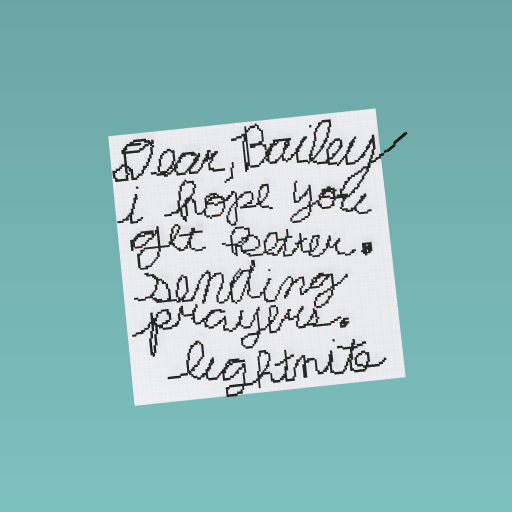 Dear, Bailey
i hope you
get better.
sending
prayers.
lightnite